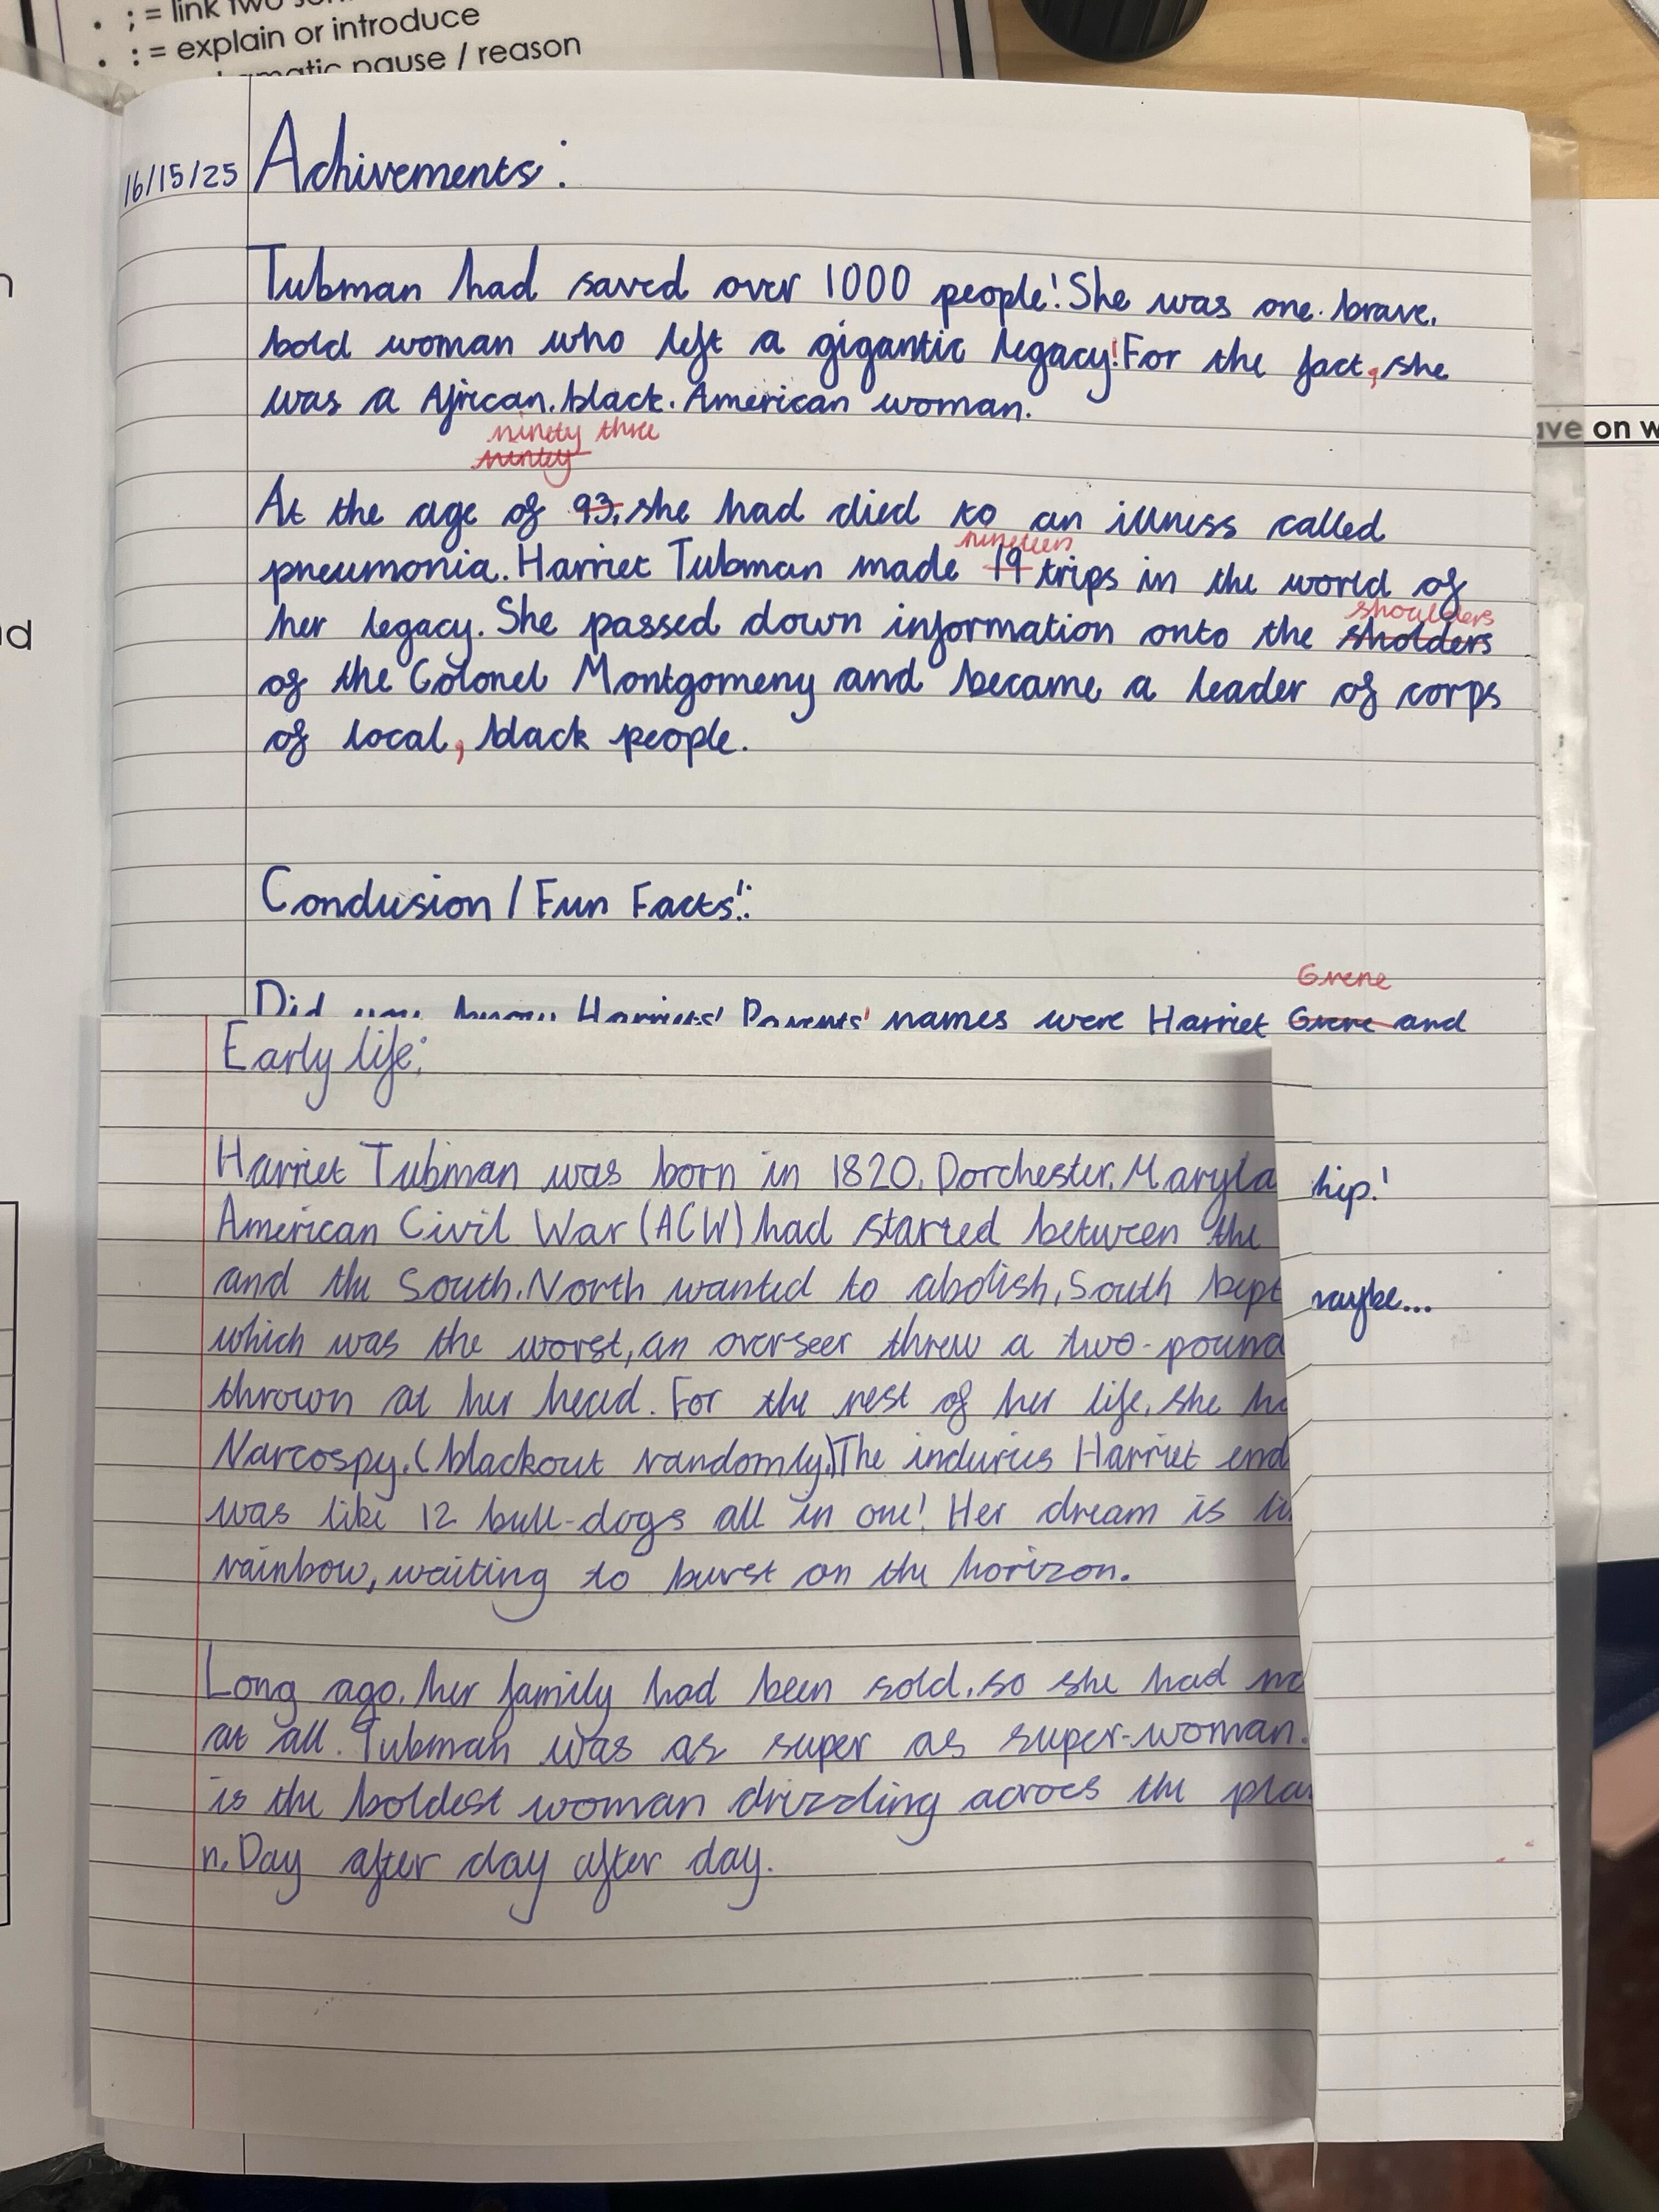 ; = link two
• : = explain or introduce
pause / reason
16/15/25
Achivements:
Tubman had saved over 1000 people! She was one. brave,
bold woman who left a gigantic legacy! For the fact, she
was a African. black. American woman.
ninety three
At the age of 93, she had died to an illness called
nineteen
pneumonia. Harriet Tubman made 19 trips in the world of
shoulders
her legacy. She passed down information onto the sholders
of the Colonel Montgomeny and became a leader of corps
of local, black people.
Conclusion / Fun Facts!:
Grene
Did you know Harriets' Parents' names were Harriet and
Early life:
Harriet Tubman was born in 1820, Dorchester, Maryla
American Civil War (ACW) had started between the
and the South. North wanted to abolish, South kept
which was the worst, an overseer threw a two-pound
thrown at her head. For the rest of her life, she ha
Narcospy. (blackout randomly) The induries Harriet end
was like 12 bull-dogs all in one! Her dream is li
rainbow, waiting to burst on the horizon.
Long ago, her family had been sold, so she had no
at all. Tubman was as super as super-woman.
is the boldest woman drizzling across the pla
n. Day after day after day.
hip!
maybe...
ve on w